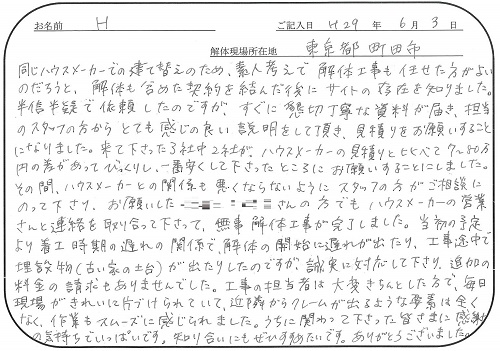 お名前 H ご記入日 H29 年 6 月 3 日
解体現場所在地 東京都町田市
同じハウスメーカーでの建て替えのため、素人考えで解体工事も任せた方がよい
のだろうと、解体も含めた契約を結んだ後にサイトの存在を知りました。
半信半疑で依頼したのですが、すぐに懇切丁寧な資料が届き、担当
のスタッフの方からとても感じの良い説明をして頂き、見積りをお願いすること
になりました。来て下さった3社中2社が、ハウスメーカーの見積りと比べて
円の差があってびっくりし、一番安くして下さったところにお願いすることにしました。
その間、ハウスメーカーとの関係も悪くならないようにスタッフの方がご相談に
のって下さり、お願いした さんの方でもハウスメーカーの営業
さんと連絡を取り合って下さって、無事解体工事が完了しました。当初の予定
より着工時期の遅れの関係で、解体の開始に遅れが出たり、工事途中で
埋設物(古い家の土台)が出たりしたのですが、誠実に対応して下さり、追加の
料金の請求もありませんでした。工事の担当者は大変きちんとした方で、毎日
現場がきれいに片づけられていて、近隣からクレームが出るような要素は全く
なく、作業もスムーズに感じられました。うちに関わって下さった皆さまに感謝
の気持ちでいっぱいです。知り合いにもぜひすすめたいです。ありがとうございました。